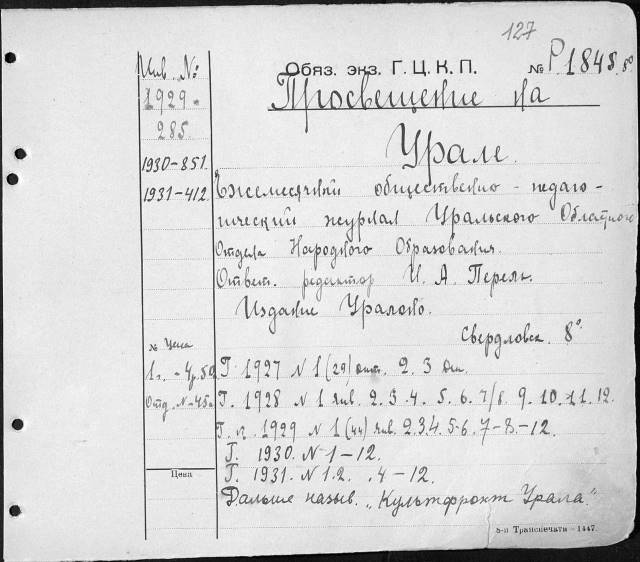 127
Обяз. экз. Г. Ц. К. П. № Р1848. 8°
Инв №:
1929 -
285.
1930-851.
1931-412.
Просвещение на
Урале.
Ежемесячный общественно-педаго-
гический журнал Уральского Областного
Отдела Народного Образования.
Ответ. редактор И. А. Перель.
Издание Уралоно.
Свердловск. 8°
№ Цена
1 г. - 4 р. 50
Отд. № - 45к
Г. 1927 N 1 (29) окт. 2. 3 Дек.
Г. 1928 N 1 янв. 2. 3. 4. 5. 6. 7/8. 9. 10. 11. 12.
1929 N 1 (44) янв. 2. 3. 4. 5-6. 7-8-12.
Г. 1930. N 1-12.
Г. 1931. N 1. 2. . 4-12.
Дальше назыв. „Культфронт Урала."
Цена
5-я Транспечати-1447.